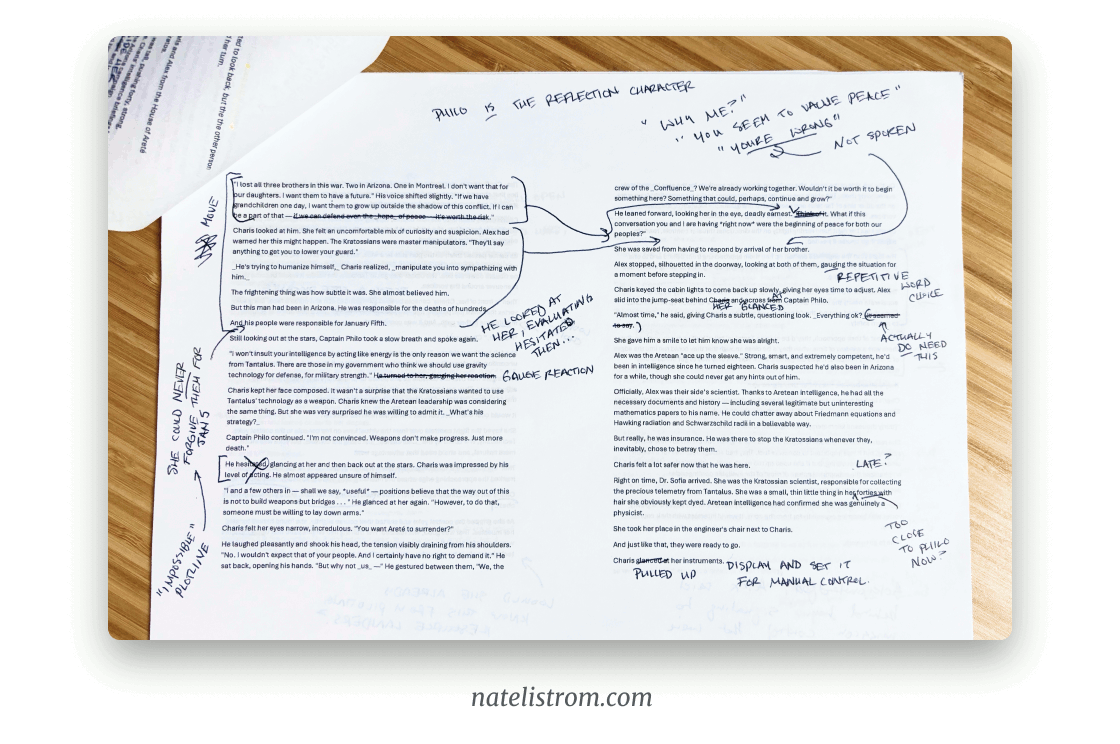 PHILO IS THE REFLECTION CHARACTER
"WHY ME?"
"YOU SEEM TO VALUE PEACE"
"YOU'RE WRONG"
NOT SPOKEN
ted to look back, but the other person
her turn.
and Alex from the House of Areté
MOVE
"I lost all three brothers in this war. Two in Arizona. One in Montreal. I don't want that for
our daughters. I want them to have a future." His voice shifted slightly. "If we have
grandchildren one day, I want them to grow up outside the shadow of this conflict. If I can
be a part of that — if we can defend even the _hope_ of peace — it's worth the risk."
Charis looked at him. She felt an uncomfortable mix of curiosity and suspicion. Alex had
warned her this might happen. The Kratossians were master manipulators. "They'll say
anything to get you to lower your guard."
_He's trying to humanize himself,_ Charis realized, _manipulate you into sympathizing with
him._
The frightening thing was how subtle it was. She almost believed him.
But this man had been in Arizona. He was responsible for the deaths of hundreds.
And his people were responsible for January Fifth.
HE LOOKED AT
HER, EVALUATING
HESITATED
THEN...
Still looking out at the stars, Captain Philo took a slow breath and spoke again.
"I won't insult your intelligence by acting like energy is the only reason we want the science
from Tantalus. There are those in my government who think we should use gravity
technology for defense, for military strength." He turned to her, gauging her reaction.
GAUGE REACTION
Charis kept her face composed. It wasn't a surprise that the Kratossians wanted to use
Tantalus' technology as a weapon. Charis knew the Aretean leadership was considering
the same thing. But she was very surprised he was willing to admit it. _What's his
strategy?_
Captain Philo continued. "I'm not convinced. Weapons don't make progress. Just more
death."
He hesitated, glancing at her and then back out at the stars. Charis was impressed by his
level of acting. He almost appeared unsure of himself.
"I and a few others in — shall we say, *useful* — positions believe that the way out of this
is not to build weapons but bridges . . ." He glanced at her again. "However, to do that,
someone must be willing to lay down arms."
Charis felt her eyes narrow, incredulous. "You want Areté to surrender?"
He laughed pleasantly and shook his head, the tension visibly draining from his shoulders.
"No. I wouldn't expect that of your people. And I certainly have no right to demand it." He
sat back, opening his hands. "But why not _us_ —" He gestured between them, "We, the
SHE COULD NEVER
FORGIVE THEM FOR
JAN 5
"IMPOSSIBLE"
PLOTLINE
crew of the _Confluence_? We're already working together. Wouldn't it be worth it to begin
something here? Something that could, perhaps, continue and grow?"
He leaned forward, looking her in the eye, deadly earnest. "Think of it. What if this
conversation you and I are having *right now* were the beginning of peace for both our
peoples?"
She was saved from having to respond by arrival of her brother.
Alex stopped, silhouetted in the doorway, looking at both of them, gauging the situation for
a moment before stepping in.
REPETITIVE
WORD
CHOICE
Charis keyed the cabin lights to come back up slowly, giving her eyes time to adjust. Alex
slid into the jump-seat behind Charis and across from Captain Philo.
HER GLANCED AT
"Almost time," he said, giving Charis a subtle, questioning look. _Everything ok?_ he seemed
to say.
ACTUALLY
DO NEED
THIS
She gave him a smile to let him know she was alright.
Alex was the Aretean "ace up the sleeve." Strong, smart, and extremely competent, he'd
been in intelligence since he turned eighteen. Charis suspected he'd also been in Arizona
for a while, though she could never get any hints out of him.
Officially, Alex was their side's scientist. Thanks to Aretean intelligence, he had all the
necessary documents and history — including several legitimate but uninteresting
mathematics papers to his name. He could chatter away about Friedmann equations and
Hawking radiation and Schwarzschild radii in a believable way.
But really, he was insurance. He was there to stop the Kratossians whenever they,
inevitably, chose to betray them.
Charis felt a lot safer now that he was here.
LATE?
Right on time, Dr. Sofia arrived. She was the Kratossian scientist, responsible for collecting
the precious telemetry from Tantalus. She was a small, thin little thing in her forties with
hair she obviously kept dyed. Aretean intelligence had confirmed she was genuinely a
physicist.
TOO
CLOSE
TO PHILO
NOW?
She took her place in the engineer's chair next to Charis.
And just like that, they were ready to go.
Charis glanced at her instruments.
PULLED UP
DISPLAY AND SET IT
FOR MANUAL CONTROL.
natelistrom.com